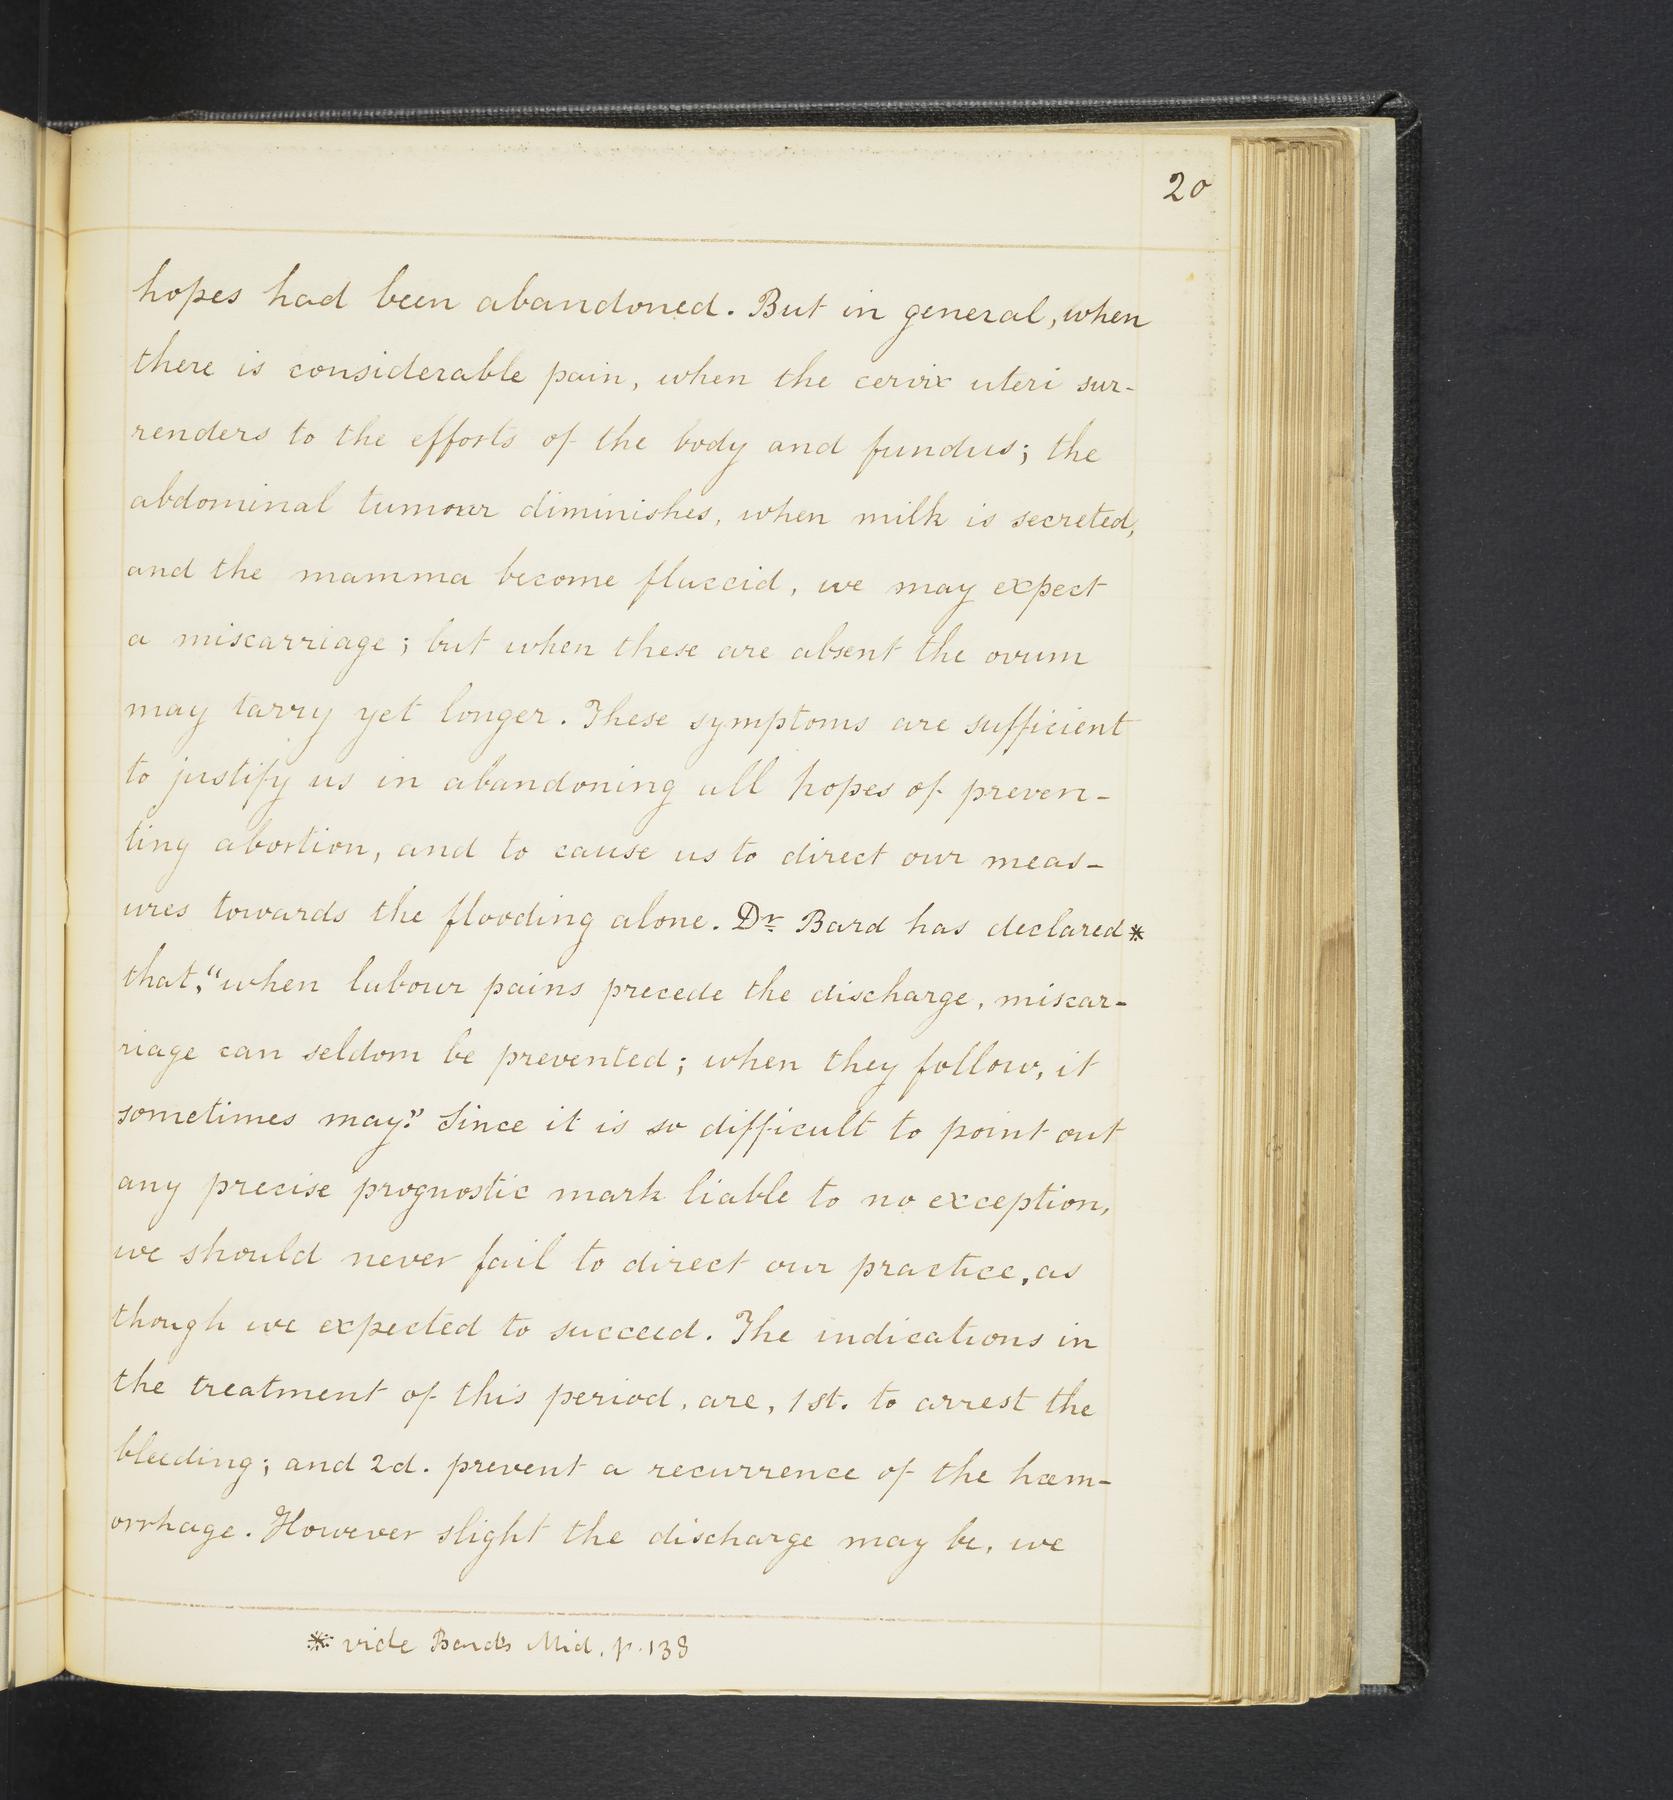 20
hopes had been abandoned. But in general, when
there is considerable pain, when the cervix uteri sur-
renders to the efforts of the body and fundus; the
abdominal tumour diminishes, when milk is secreted,
and the mamma become flaccid, we may expect
a miscarriage; but when these are absent the ovum
may tarry yet longer. These symptoms are sufficient
to justify us in abandoning all hopes of preven-
ting abortion, and to cause us to direct our meas-
ures towards the flooding alone. Dr Bard has declared*
that, "when labour pains precede the discharge, miscar-
riage can seldom be prevented; when they follow, it
sometimes may." Since it is so difficult to point out
any precise prognostic mark liable to no exception,
we should never fail to direct our practice, as
though we expected to succeed. The indications in
the treatment of this period, are, 1st. to arrest the
bleeding; and 2d. prevent a recurrence of the hæm-
orrhage. However slight the discharge may be, we
* vide Bard's Mid. p. 138